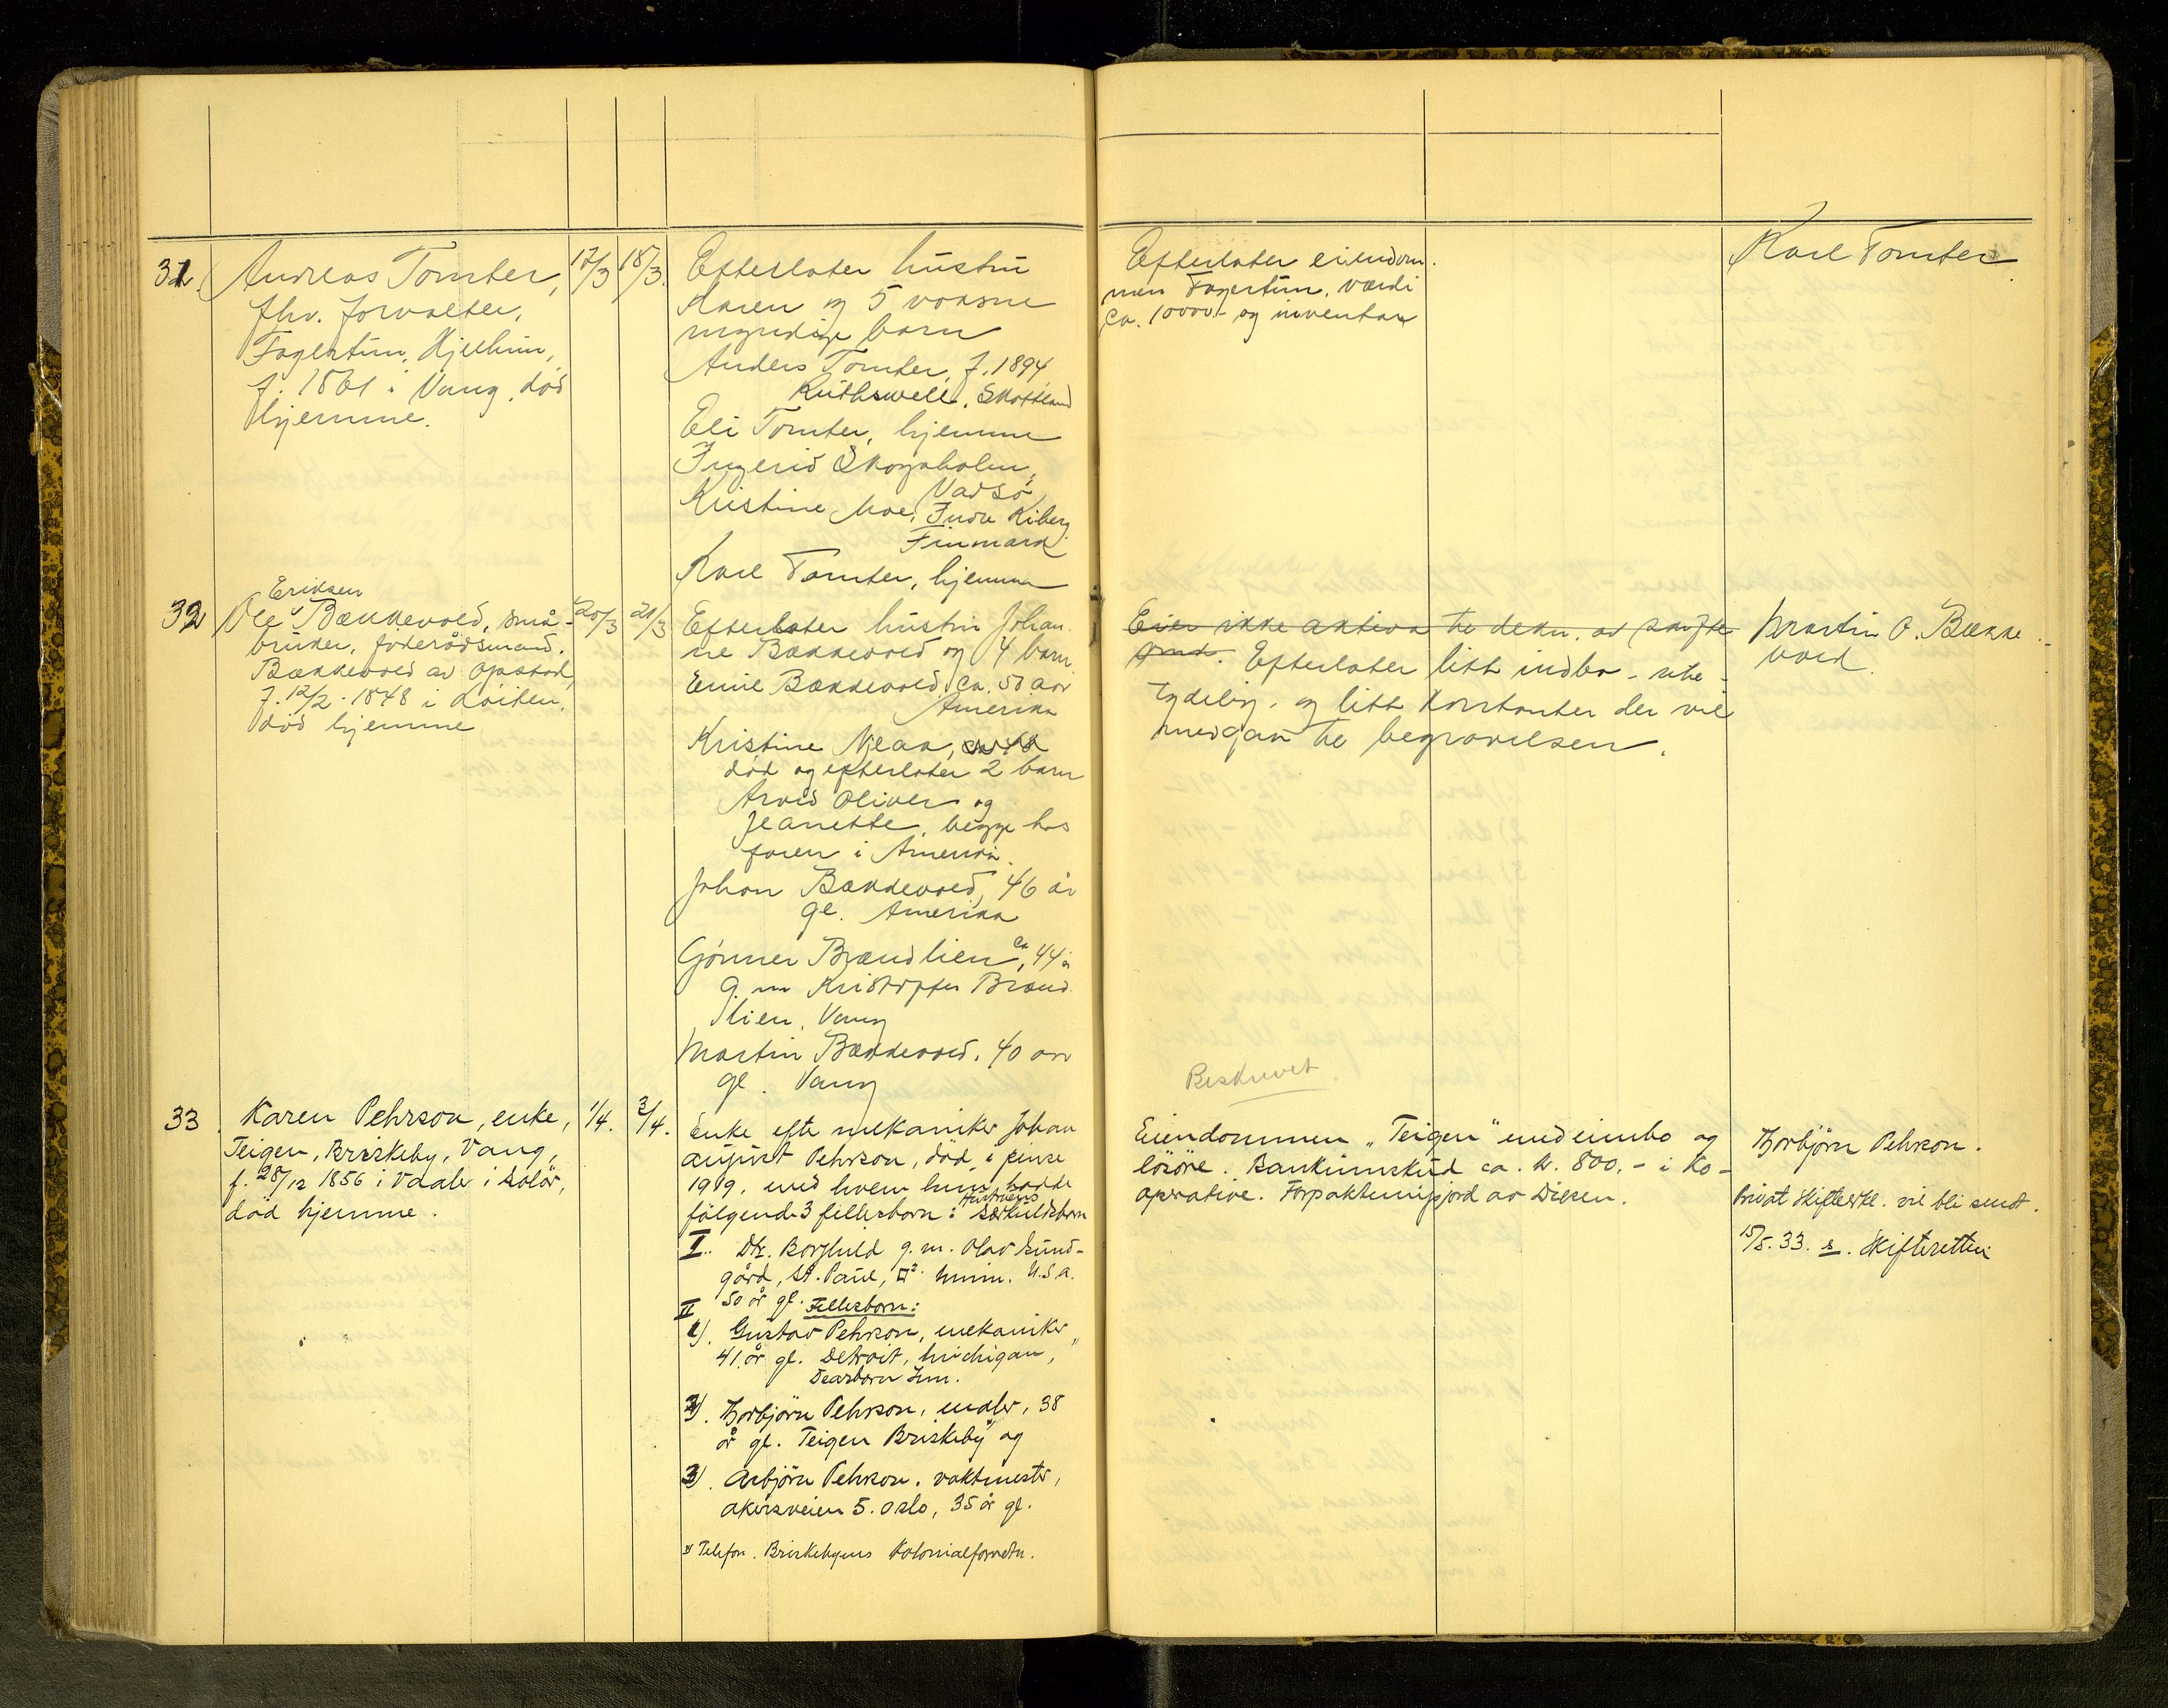 31. Andreas Tomter,
fhv. forvalter,
Fagertun, Hjellum,
f. 1861 i Vang, død
hjemme.
17/3 18/3.
Efterlater hustru
Karen og 5 voksne
myndige barn
Anders Tomter, f. 1894
Ruthswell, Skottland
Eli Tomter, hjemme
Ingerid Skogholm,
Vadsø
Kristine Moe, Indre Kiberg
Finmark
Karl Tomter, hjemme
Efterlater eiendom-
men Fagertun, værdi
ca. 10000.- og inventar
Karl Tomter
32 Ole Eriksen Bækkevold, små-
bruker, føderådsmand.
Bækkevold av Opstad,
f. 12/2 - 1848 i Løiten,
død hjemme
20/3 21/3
Efterlater hustru Johan-
ne Bækkevold og 4 barn
Emil Bækkevold, ca. 50 aar
Amerika
Kristine
død og efterlater 2 barn
Arvid Oliver og
Jeanette, begge hos
faren i Amerika.
Johan Bækkevold, 46 år
gl. Amerika
Gønner Brændlien, ca 44 å
g. m. Kristoffer Brænd-
lien, Vang
Martin Bækkevold, 40 aar
gl. Vang
Eier ikke aktiva til dekn. av skifte
Efterlater litt indbo - ube-
tydelig - og litt kontanter der vil
medgaa til begravelsen.
Martin O. Bække-
vold.
33. Karen Pehrson, enke,
Teigen, Briskeby, Vang,
f. 28/12 1856 i Vaaler i Solør,
død hjemme.
1/4. 3/4.
Enke efter mekaniker Johan
August Pehrson, død i
1919, med hvem hun hadde
følgende 3 fellesbarn: Hustruens særkuldsbarn
I. Dtr. Borghild g. m. Olav Sund-
gård, St. Paul, Minn. U.S.A.
50 år gl.
II Fellesbarn:
1). Gustav Pehrson, mekaniker,
41 år gl. Detroit, Michigan,
Dearborn
2). Thorbjørn Pehrson, maler, 38
år gl. Teigen Briskeby x) og
3). Asbjørn Pehrson, vaktmester,
Akersveien 5. Oslo, 35 år gl.
x) Telefon. Briskebyens Kolonialforretn.
Beskrevet
Eiendommen "Teigen" med innbo og
løsøre. Bankinnskud ca. kr. 800.- i Ko-
operative. Forpaktningsjord av Dilsen.
Thorbjørn Pehrson.
Privat skifteerkl. vil bli sendt.
15/5. 33. s. Skifteretten